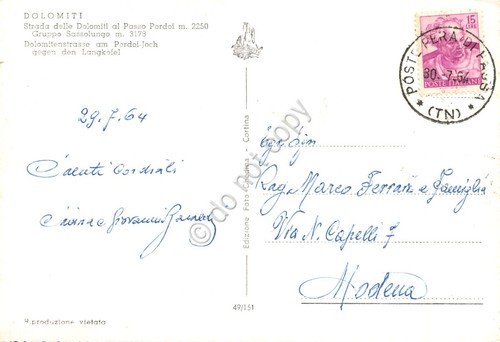 DOLOMITI
Strada delle Dolomiti al Passo Pordoi m. 2250
Gruppo Sassolungo m. 3178
Dolomitenstrasse am Pordoi-Joch
gegen den Langkofel
29.7.64
Saluti Cordiali
e Giovanni
Edizione Foto Ghedina - Cortina
49/151
Riproduzione vietata
15
LIRE
POSTE ITALIANE
POSTE PERA DI FASSA
30.-7.64
(TN)
Egr. Sign
Rag. Marco Ferrari e Famiglia
Via N. Capelli 7
Modena
© do not copy